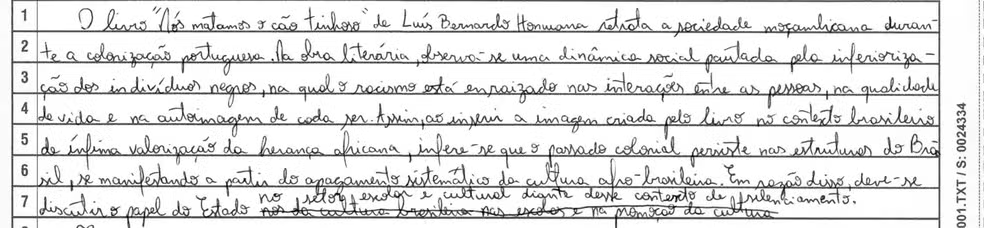 1 O livro "Nós matamos o cão tinhoso" de Luís Bernardo Honwana retrata a sociedade moçambicana duran-
2 te a colonização portuguesa. Na obra literária, observa-se uma dinâmica social pautada pela inferioriza-
3 ção dos indivíduos negros, na qual o racismo está enraizado nas interações entre as pessoas, na qualidade
4 de vida e na autoimagem de cada ser. Assim, ao inserir a imagem criada pelo livro no contexto brasileiro
5 de ínfima valorização da herança africana, infere-se que o passado colonial persiste nas estruturas do Bra
6 sil, se manifestando a partir do apagamento sistemático da cultura afro-brasileira. Em razão disso, deve-se
no setor escolar e cultural diante deste contexto de silenciamento.
7 discutir o papel do Estado nos da cultura brasileira nas escolas e na promoção da cultura
001.TXT / S: 0024334